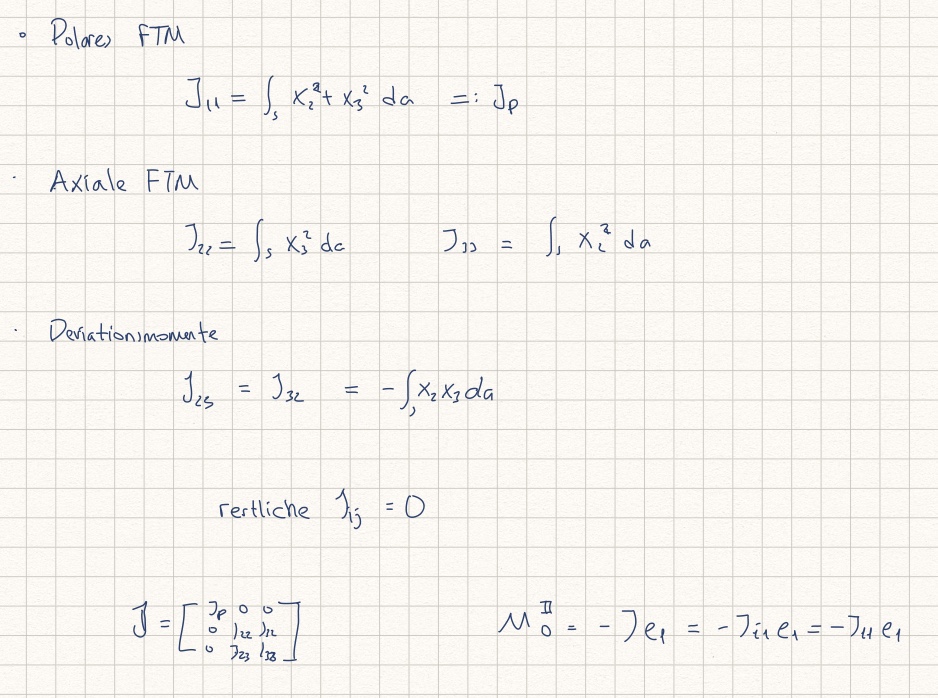 • Polares FTM
J₁₁ = ∫ₛ x₂² + x₃² da =: Jₚ
· Axiale FTM
J₂₂ = ∫ₛ x₃² da J₃₃ = ∫ₛ x₂² da
· Deviationsmomente
J₂₃ = J₃₂ = - ∫ₛ x₂ x₃ da
restliche Jᵢⱼ = 0
J = [Jₚ 0 0
0 J₂₂ J₃₂
0 J₂₃ J₃₃] M₀ᴵᴵ = - J e₁ = - Jᵢ₁ e₁ = - J₁₁ e₁